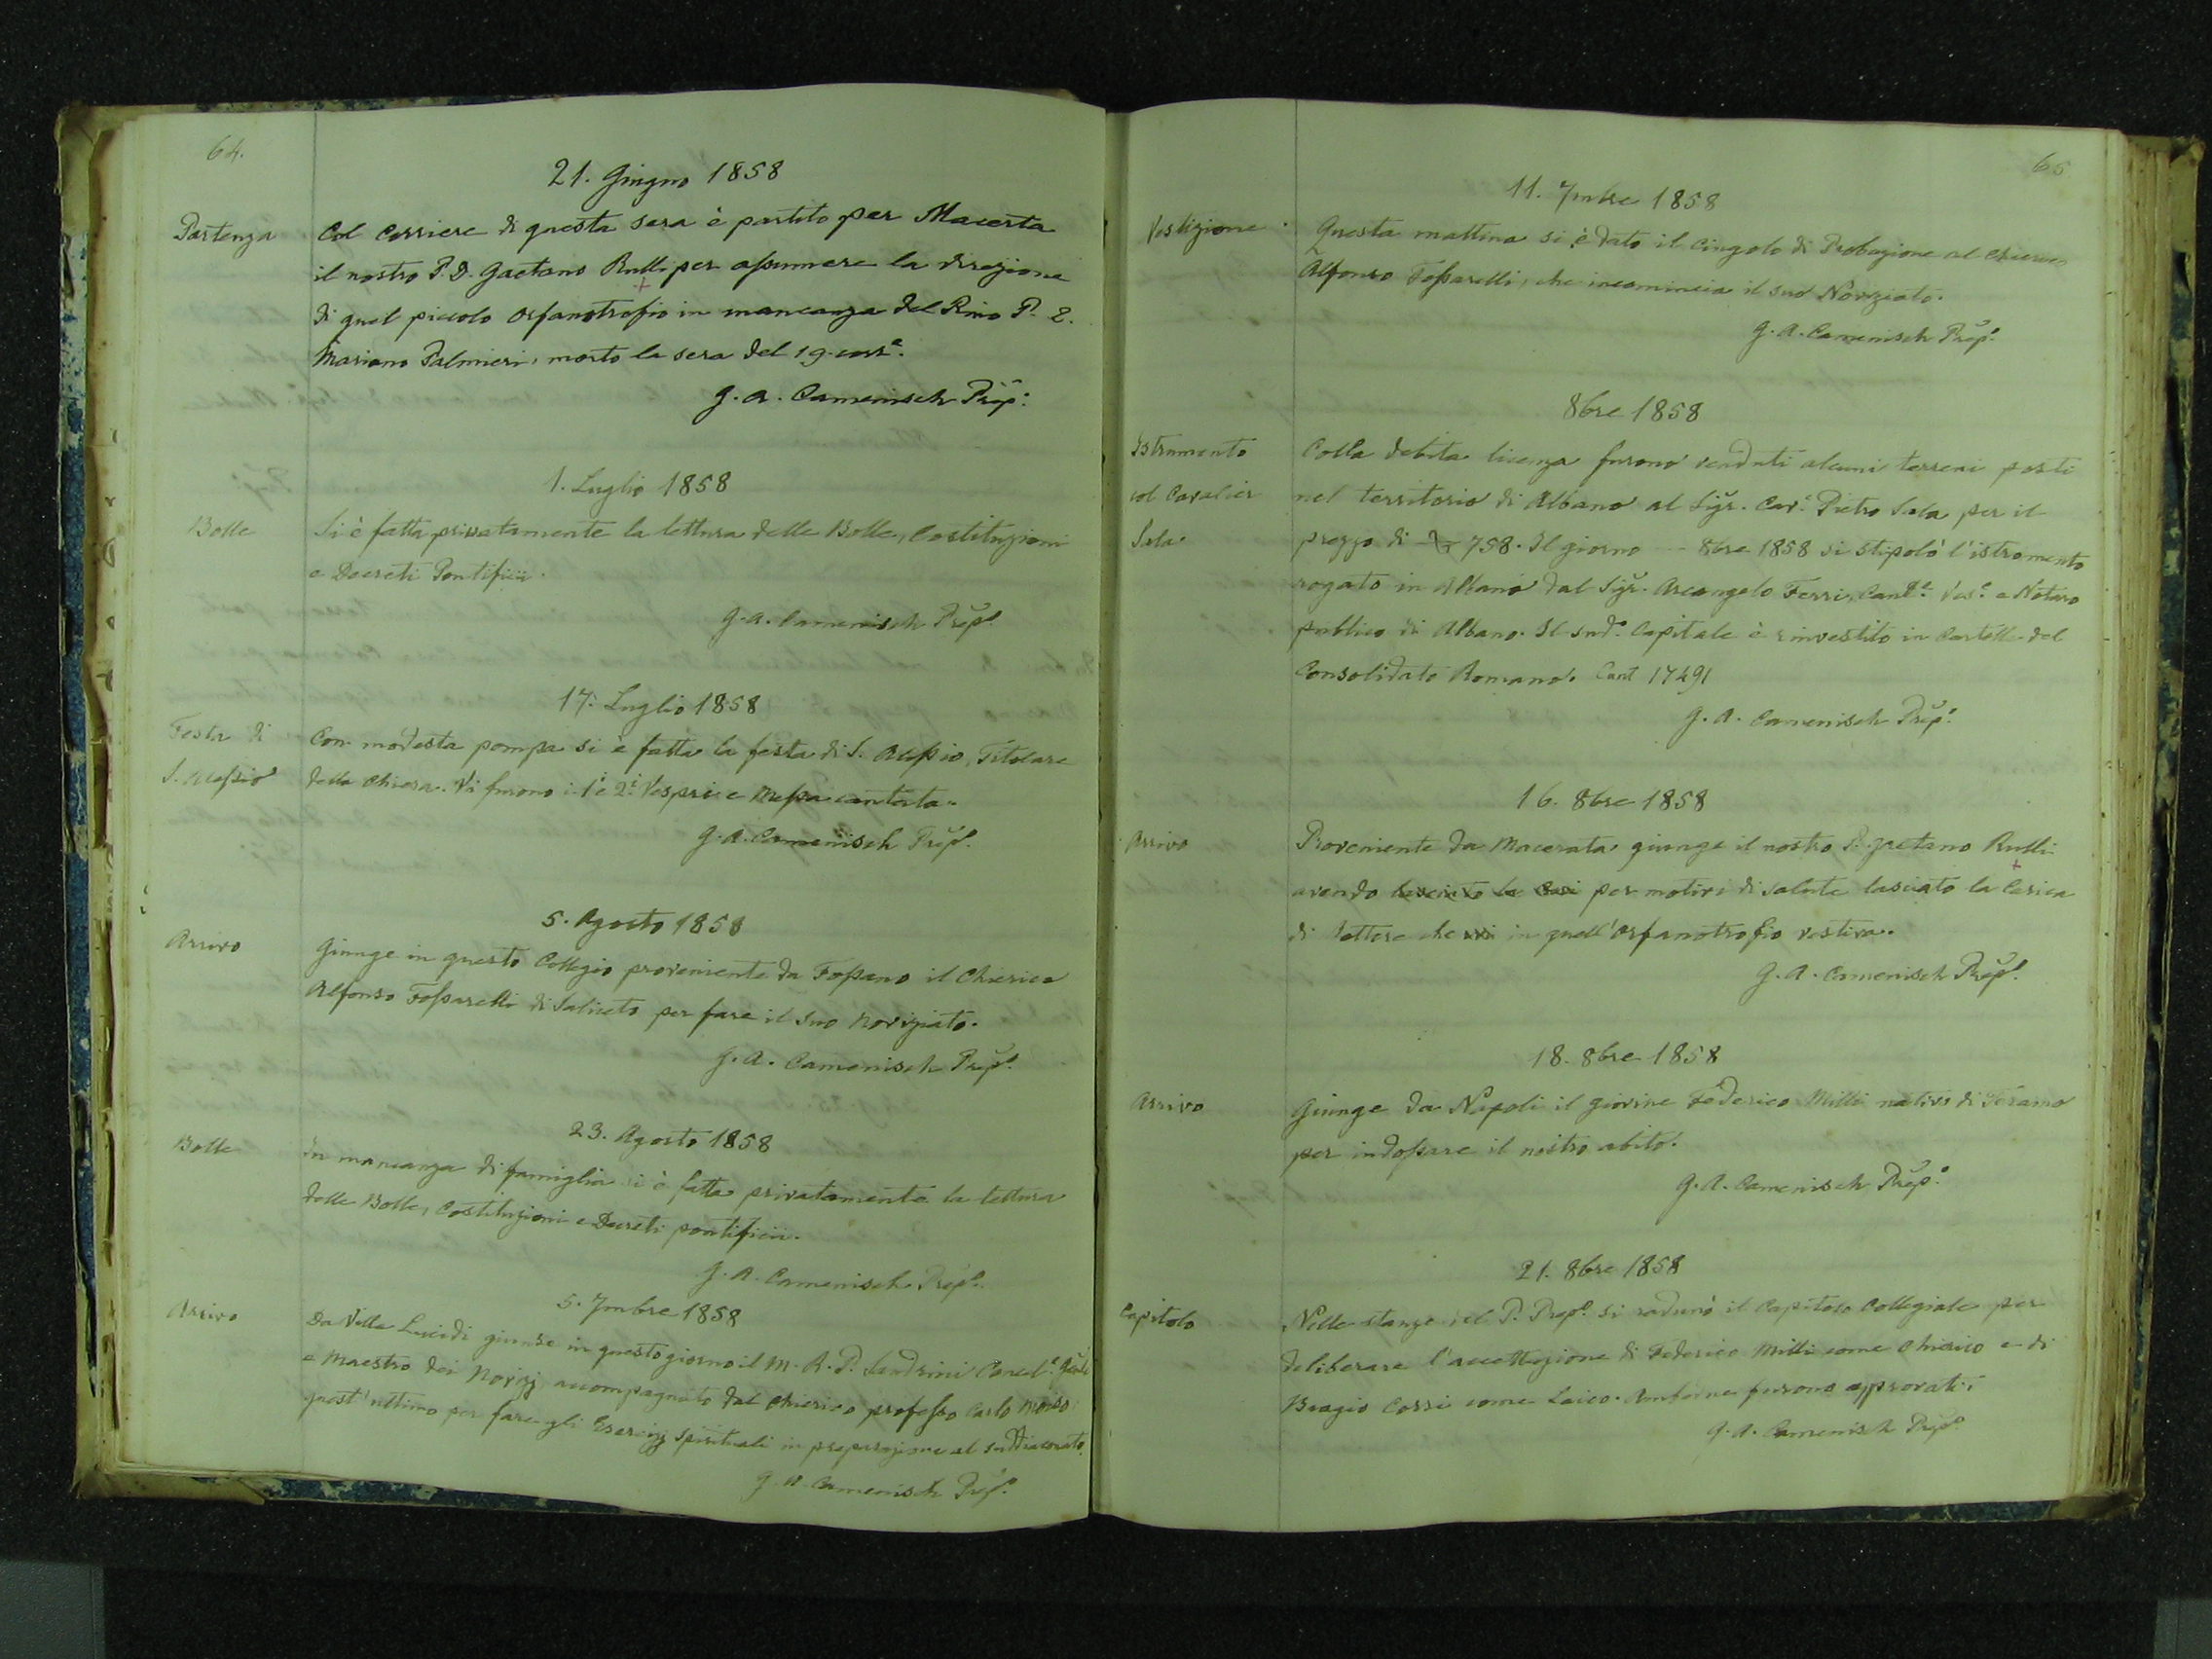 64.
21. Giugno 1858
Partenza
Col Corriere di questa sera è partito per Macerta
il nostro P. D. Gaetano Rulli per assumere la direzione
di quel piccolo Orfanotrofio in mancanza del Rmo P. D.
Mariano Palmieri, morto la sera del 19. corre.
G. A. Camenisch Prepo.
1. Luglio 1858
Bolle
Si è fatta privatamente la lettura delle Bolle, Costituzioni
e Decreti Pontificii.
G. A. Camenisch Prepo.
17. Luglio 1858
Festa di
S. Alessio
Con modesta pompa si è fatta la festa di S. Alessio, Titolare
della Chiesa. Vi furono i 1i e 2i Vespri e Messa cantata.
G. A. Camenisch Prepo.
5. Agosto 1858
Arrivo
Giunge in questo Collegio proveniente da Fossano il Chierico
Alfonso Fossarelli di Saliceto per fare il suo Noviziato.
G. A. Camenisch Prepo.
23. Agosto 1858
Bolle
In mancanza di famiglia si è fatta privatamente la lettura
delle Bolle, Costituzioni e Decreti pontificii.
G. A. Camenisch Prepo.
5. 7mbre 1858
Arrivo
Da Villa Lucidi giunse in questo giorno il M. R. P. Sandrini Cancele.
e Maestro dei Novizj accompagnato dal Chierico professo Carlo
quest'ultimo per fare gli Esercizj Spirituali in preparazione al suddiaconato.
G. A. Camenisch Prepo.
65
11. 7mbre 1858
Vestizione
Questa mattina si è dato il Cingolo di Probazione al Chierico
Alfonso Fossarelli, che incomincia il suo Noviziato.
G. A. Camenisch Prepo.
8bre 1858
Istrumento
col Cavalier
Sala
Colla debita licenza furono venduti alcuni terreni posti
nel territorio di Albano al Sigr. Cavr. Pietro Sala per il
prezzo di 758. Il giorno -- 8bre 1858 si stipolò l'istromento
rogato in Albano dal Sigr. Arcangelo Ferri, Cance. Vese. e Notaro
publico di Albano. Il sudo. Capitale è rinvestito in Cartelle del
Consolidato Romano. Cart 17491
G. A. Camenisch Prepo.
16. 8bre 1858
Arrivo
Proveniente da Macerata giunge il nostro P. Gaetano Rulli
avendo lasciato la Cari per motivi di salute lasciato la Carica
di Rettore che in quell'Orfanotrofio vestiva.
G. A. Camenisch Prepo.
18. 8bre 1858
Arrivo
Giunge da Napoli il giovine Federico Milli nativo di Teramo
per indossare il nostro abito.
G. A. Camenisch Prepo.
21. 8bre 1858
Capitolo
Nelle stanze del P. Prepo. si radunò il Capitolo Collegiale per
deliberare l'accettazione di Federico Milli come Chierico e di
Biagio Corsi come Laico. Ambedue furono approvati.
G. A. Camenisch Prepo.